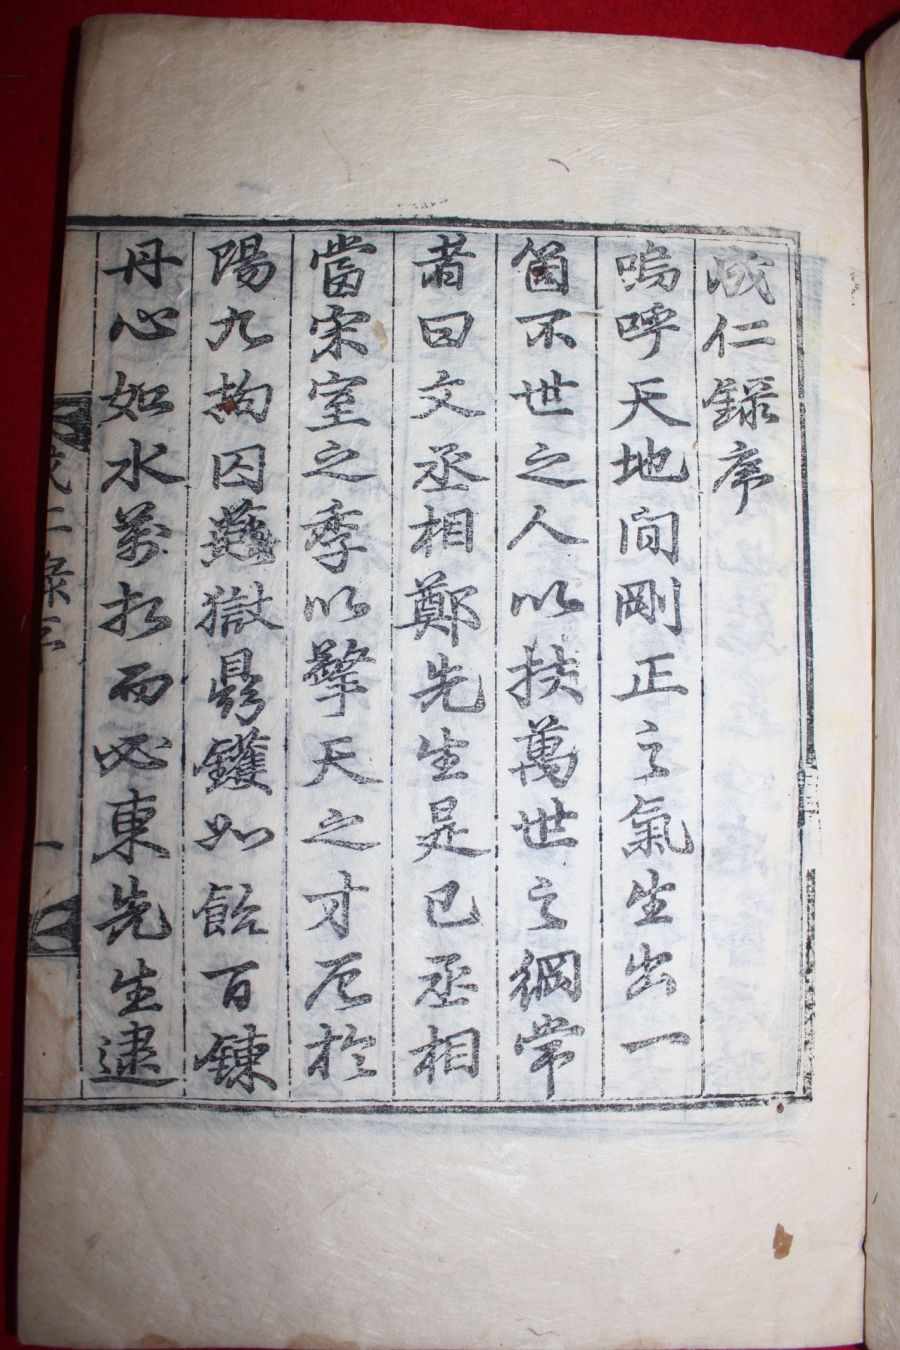 成仁錄序
嗚呼天地間剛正之氣生出一
箇不世之人以扶萬世之綱常
者曰文丞相鄭先生是已丞相
當宋室之季以擎天之才厄於
陽九拘囚燕獄鼎鑊如飴百鍊
丹心如水萬折而必東先生逮
成仁錄序 一